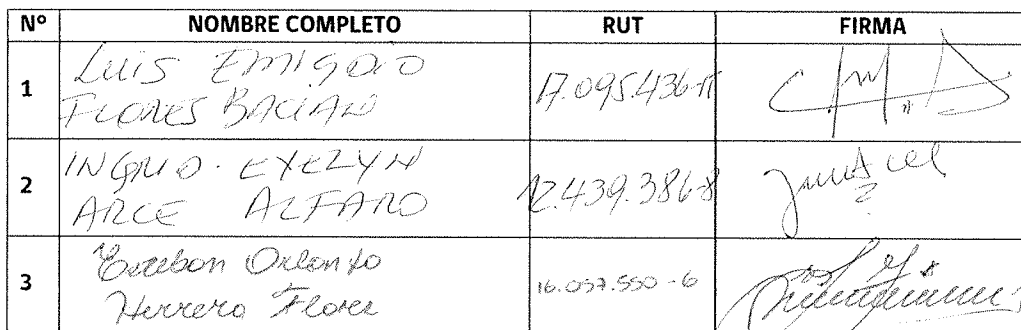 Nº NOMBRE COMPLETO RUT FIRMA
1 Luis Emigdio
FLORES 17.095.436-
2 INGRID. EVELYN
ARCE ALFARO 12.439.386-8
3 Esteban Orlando
Herrera Flores 16.057.550-6